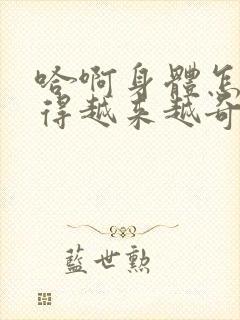 哈啊身體怎
得越來越奇
藍世勲